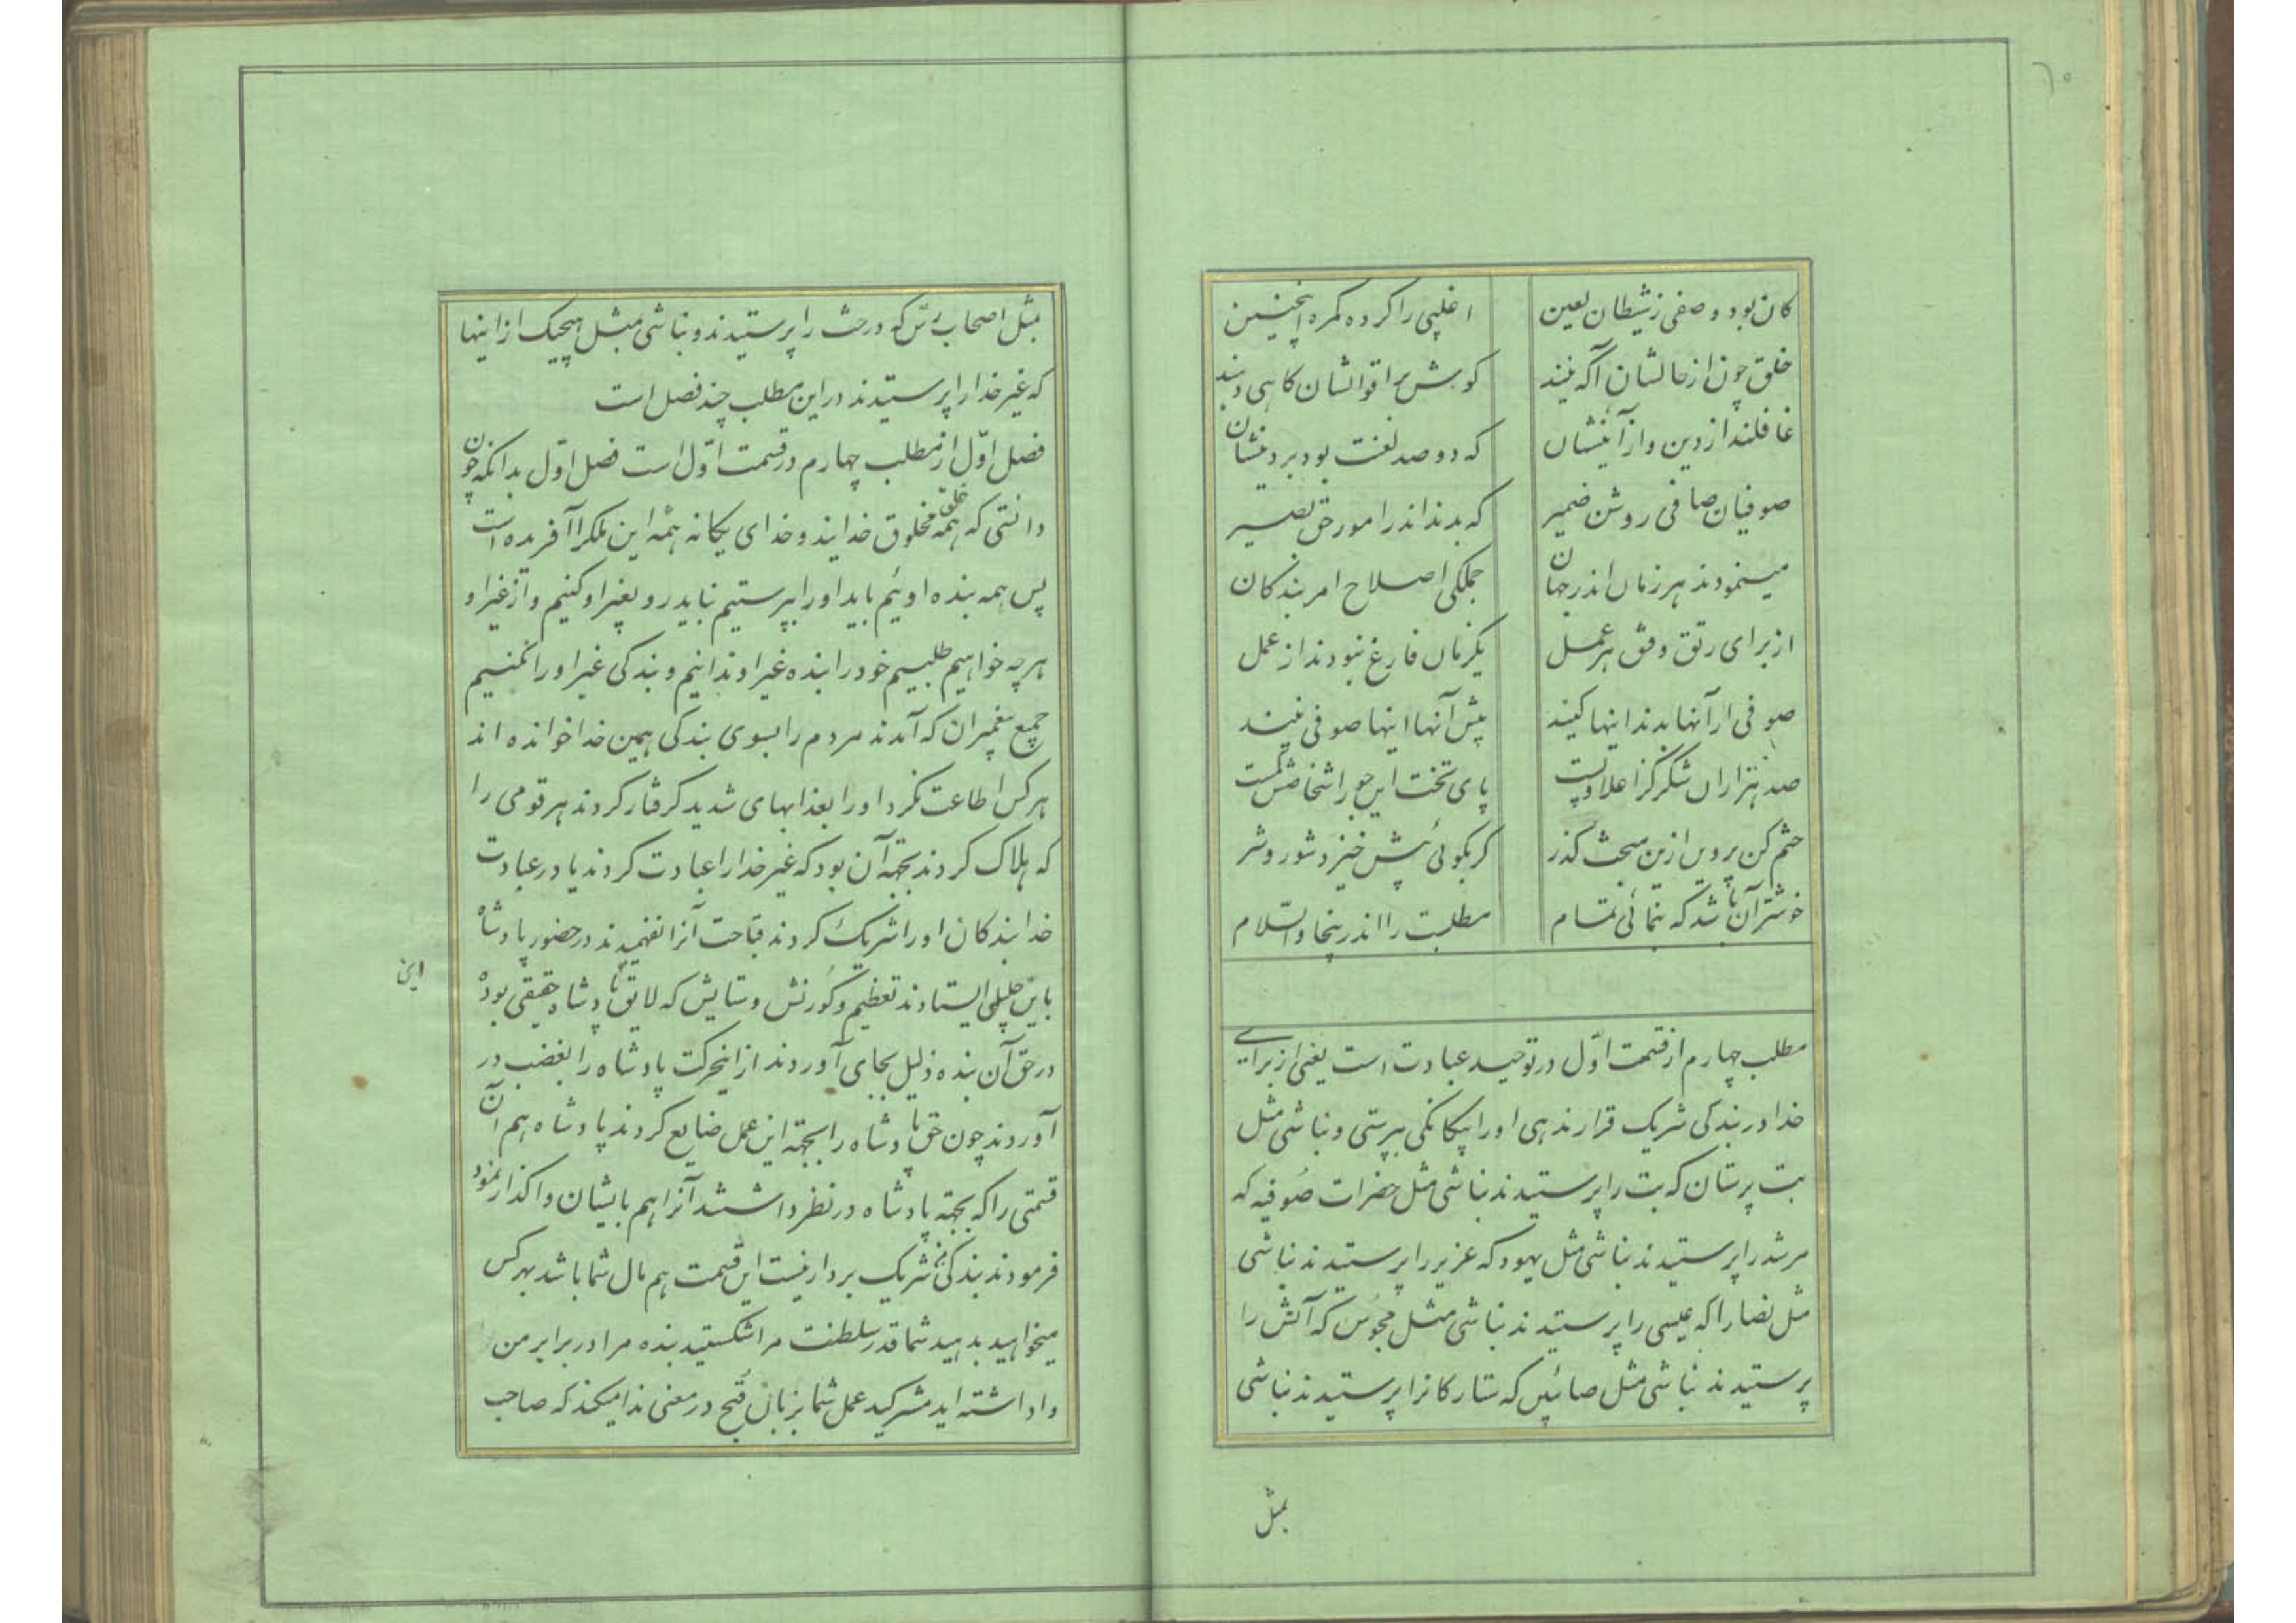 ۶۰
کان بود وصفی ز شیطان لعین اغلبی را کرده گمره اینچنین
خلق چون از حالشان آگه نیند گوش بر اقوالشان گاهی دهند
غافلند از دین و از آئینشان که دو صد لعنت بود بر دینشان
صوفیان صافی روشن ضمیر که بدند اندر امور حق بصیر
مینمودند هر زمان اندر جهان جملگی اصلاح امر بندگان
از برای رتق و فتق هر عمل یکزمان فارغ نبودند از عمل
صوفی ار آنها بدند اینها کیند پیش آنها اینها صوفی نیند
صد هزاران شکر کز اعلا و پست پای تخت این جور اشخاص شکست
ختم کن پروین ازین مبحث گذر گر بگوئی بیش خیزد شور و شر
خوشتر آن باشد که بنمائی تمام مطلبت را اندرینجا والسلام
مطلب چهارم از قسمت اوّل در توحید عبادت است یعنی از برای
خدا در بندگی شریک قرار ندهی او را بیگانگی بپرستی و نباشی مثل
بت پرستان که بت را پرستیدند نباشی مثل حضرات صُوفیه که
مرشد را پرستیدند نباشی مثل یهود که عزیر را پرستیدند نباشی
مثل نصارا که عیسی را پرستیدند نباشی مثل مجوُس که آتش را
پرستیدند نباشی مثل صائبین که ستارگانرا پرستیدند نباشی
بمثل
مثل اصحاب رسّ که درخت را پرستیدند و نباشی مثل هیچیک از اینها
که غیر خدا را پرستیدند در این مطلب چند فصل است
فصل اوّل از مطلب چهارم در قسمت اوّل است فصل اوّل بدانکه چون
دانستی که همه خلق مخلوق خدایند و خدای یگانه همه این ملکرا آفریده است
پس همه بنده اوئیم باید او را بپرستیم نباید رو بغیر او کنیم و از غیر او
هر چه خواهیم طلبیم خود را بنده غیر او ندانیم و بندگی غیر او را نکنیم
جمیع پیغمبران که آمدند مردم را بسوی بندگی همین خدا خوانده اند
هر کس اطاعت نکرد او را بعذابهای شدید گرفتار کردند هر قومی را
که هلاک کردند بجهة آن بود که غیر خدا را عبادت کردند یا در عبادت
خدا بندگان او را شریک کردند قباحت آنرا نفهمیدند در حضور پادشاه
این
باین جلیلی ایستادند تعظیم و کورنش و ستایش که لایق پادشاه حقیقی بود
در حقّ آن بنده ذلیل بجای آوردند از اینحرکت پادشاه را بغضب در
آوردند چون حق پادشاه را بجهة این عمل ضایع کردند پادشاه هم آن
قسمتی را که بجهة پادشاه در نظر داشتند آنرا هم بایشان واگذار نمود
فرمودند بندگی من شریک بردار نیست این قسمت هم مال شما باشد بهر کس
میخواهید بدهید شما قدر سلطنت مرا شکستید بنده مرا در برابر من
واداشته اید مشرکید عمل شما بزبان قبح در معنی ندا میکند که صاحب